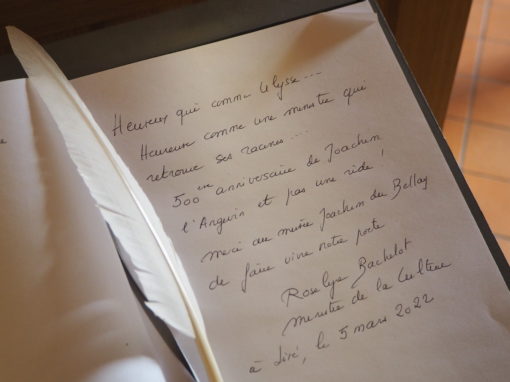 Heureux qui comme Ulysse...
Heureuse comme une ministre qui
retrouve ses racines...
500ème anniversaire de Joachim
l'Angevin et pas une ride !
merci au musée Joachim du Bellay
de faire vivre notre poète
Roselyne Bachelot
ministre de la Culture
à Liré, le 5 mars 2022